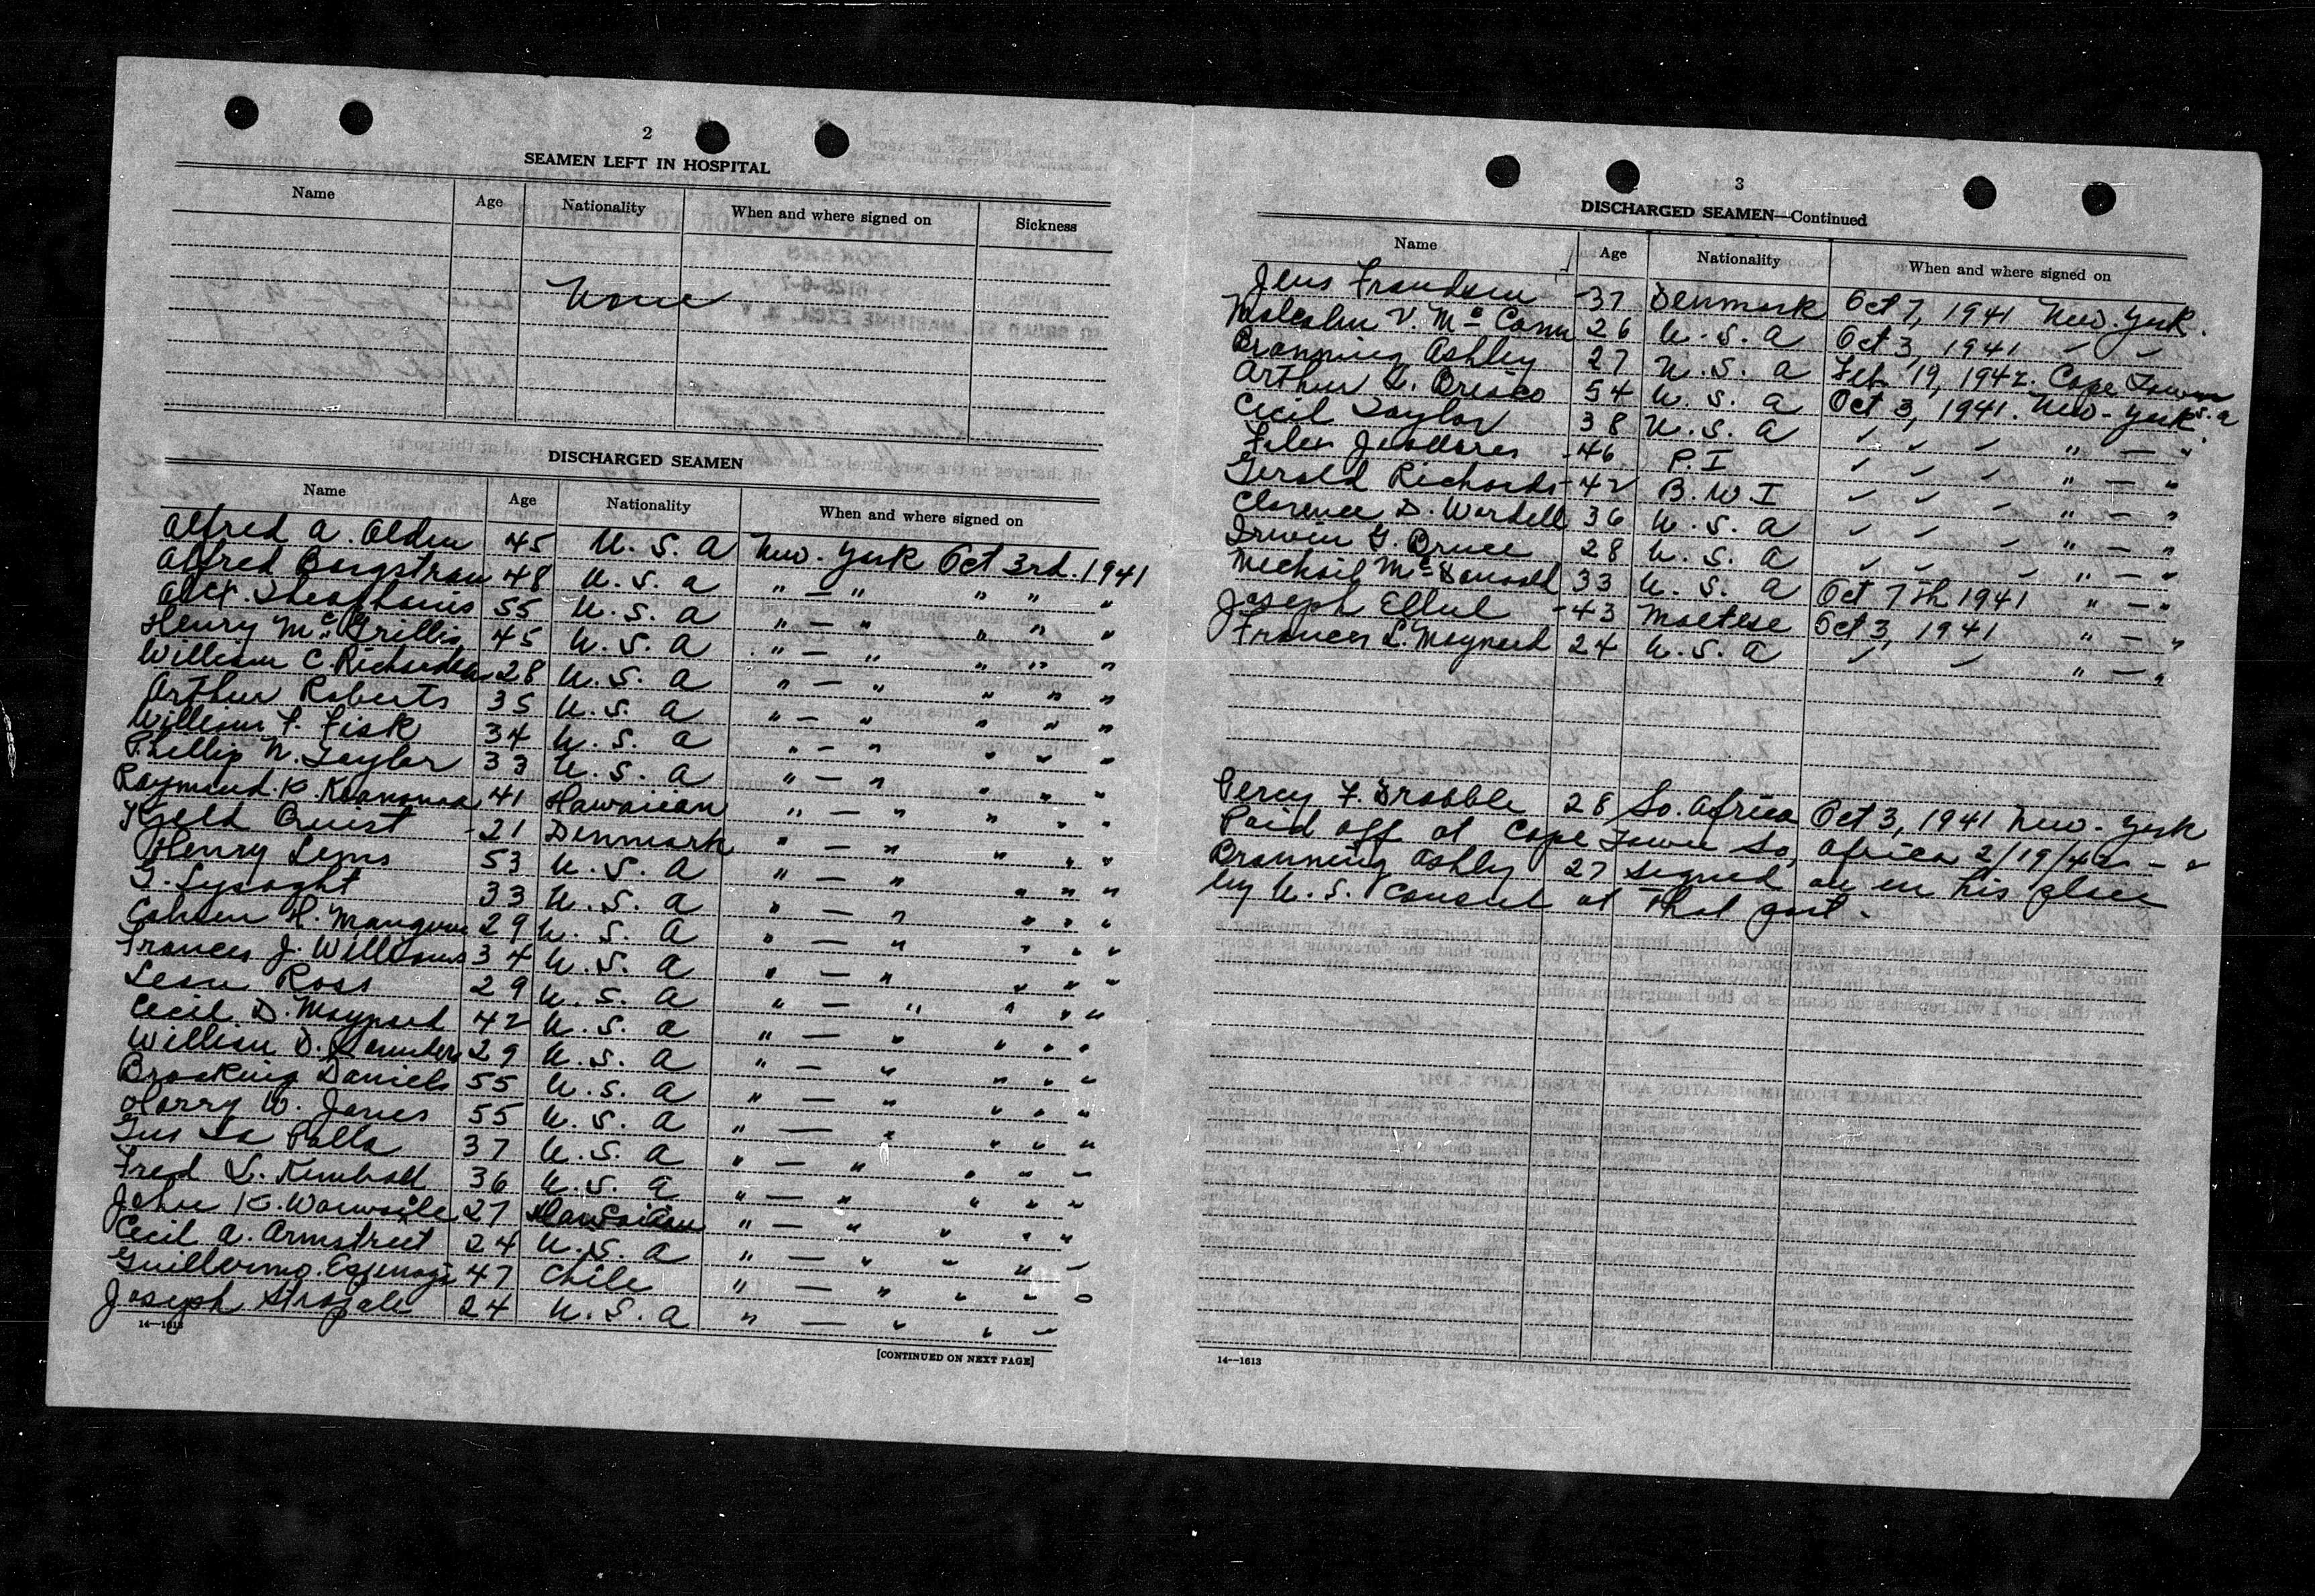 2
SEAMEN LEFT IN HOSPITAL
Name Age Nationality When and where signed on Sickness
None
DISCHARGED SEAMEN
Name Age Nationality When and where signed on
Alfred A. Olden 45 U. S. A New. York Oct 3rd. 1941
Alfred 48 U. S. A " — " " " "
Alex. Theophanis 55 U. S. A " — " " " "
Henry McGrillis 45 U. S. A " — " " " "
William C. Richardson 28 U. S. A " — " " " "
Arthur Roberts 35 U. S. A " — " " " "
William F. Fisk 34 U. S. A " — " " " "
Phillip N. Taylor 33 U. S. A " — " " " "
Raymond. K. 41 Hawaiian " — " " " "
Kjeld Quist 21 Denmark " — " " " "
Henry Lems 53 U. S. A " — " " " "
G. Lysaght 33 U. S. A " — " " " "
H. Mangum 29 U. S. A " — " " " "
Frances J. Williams 34 U. S. A " — " " " "
Leon Ross 29 U. S. A " — " " " "
Cecil D. Maynard 42 U. S. A " — " " " "
William D. 29 U. S. A " — " " " "
Brooking Daniels 55 U. S. A " — " " " "
Harry W. Jones 55 U. S. A " — " " " "
Gus La Palla 37 U. S. A " — " " " "
Fred L. Kimball 36 U. S. A " — " " " "
John K. 27 Hawaiian " — " " " "
Cecil A. Armstreet 24 U. S. A " — " " " "
Guillermo 47 Chile " — " " "
Joseph 24 U. S. A " — " " "
14—1613
[CONTINUED ON NEXT PAGE]
3
DISCHARGED SEAMEN—Continued
Name Age Nationality When and where signed on
Jens Frandsen 37 Denmark Oct 7, 1941 New. York.
Malcolm V. McCann 26 U. S. A Oct 3, 1941 " "
Branning Ashley 27 U. S. A Feb 19, 1942. Cape Town S. A
Arthur 54 U. S. A Oct 3, 1941. New-York.
Cecil Taylor 38 U. S. A ✓ ✓ ✓ " — "
46 P. I ✓ ✓ ✓ " — "
Gerald Richards 42 B. W. I ✓ ✓ ✓ " — "
Clarence D. Wardell 36 U. S. A ✓ ✓ ✓ " — "
Irwin G. Bruce 28 U. S. A ✓ ✓ ✓ " — "
33 U. S. A Oct 7th 1941 " — "
Joseph Ellul 43 Maltese Oct 3, 1941 " — "
Frances L. Maynard 24 U. S. A ✓ ✓ " — "
Percy F. Drabble 28 So. Africa Oct 3, 1941 New-York
Paid off at Cape Town So, Africa 2/19/42 —
Branning Ashley 27 signed on in his place
by U. S. Consul at that port.
14—1613